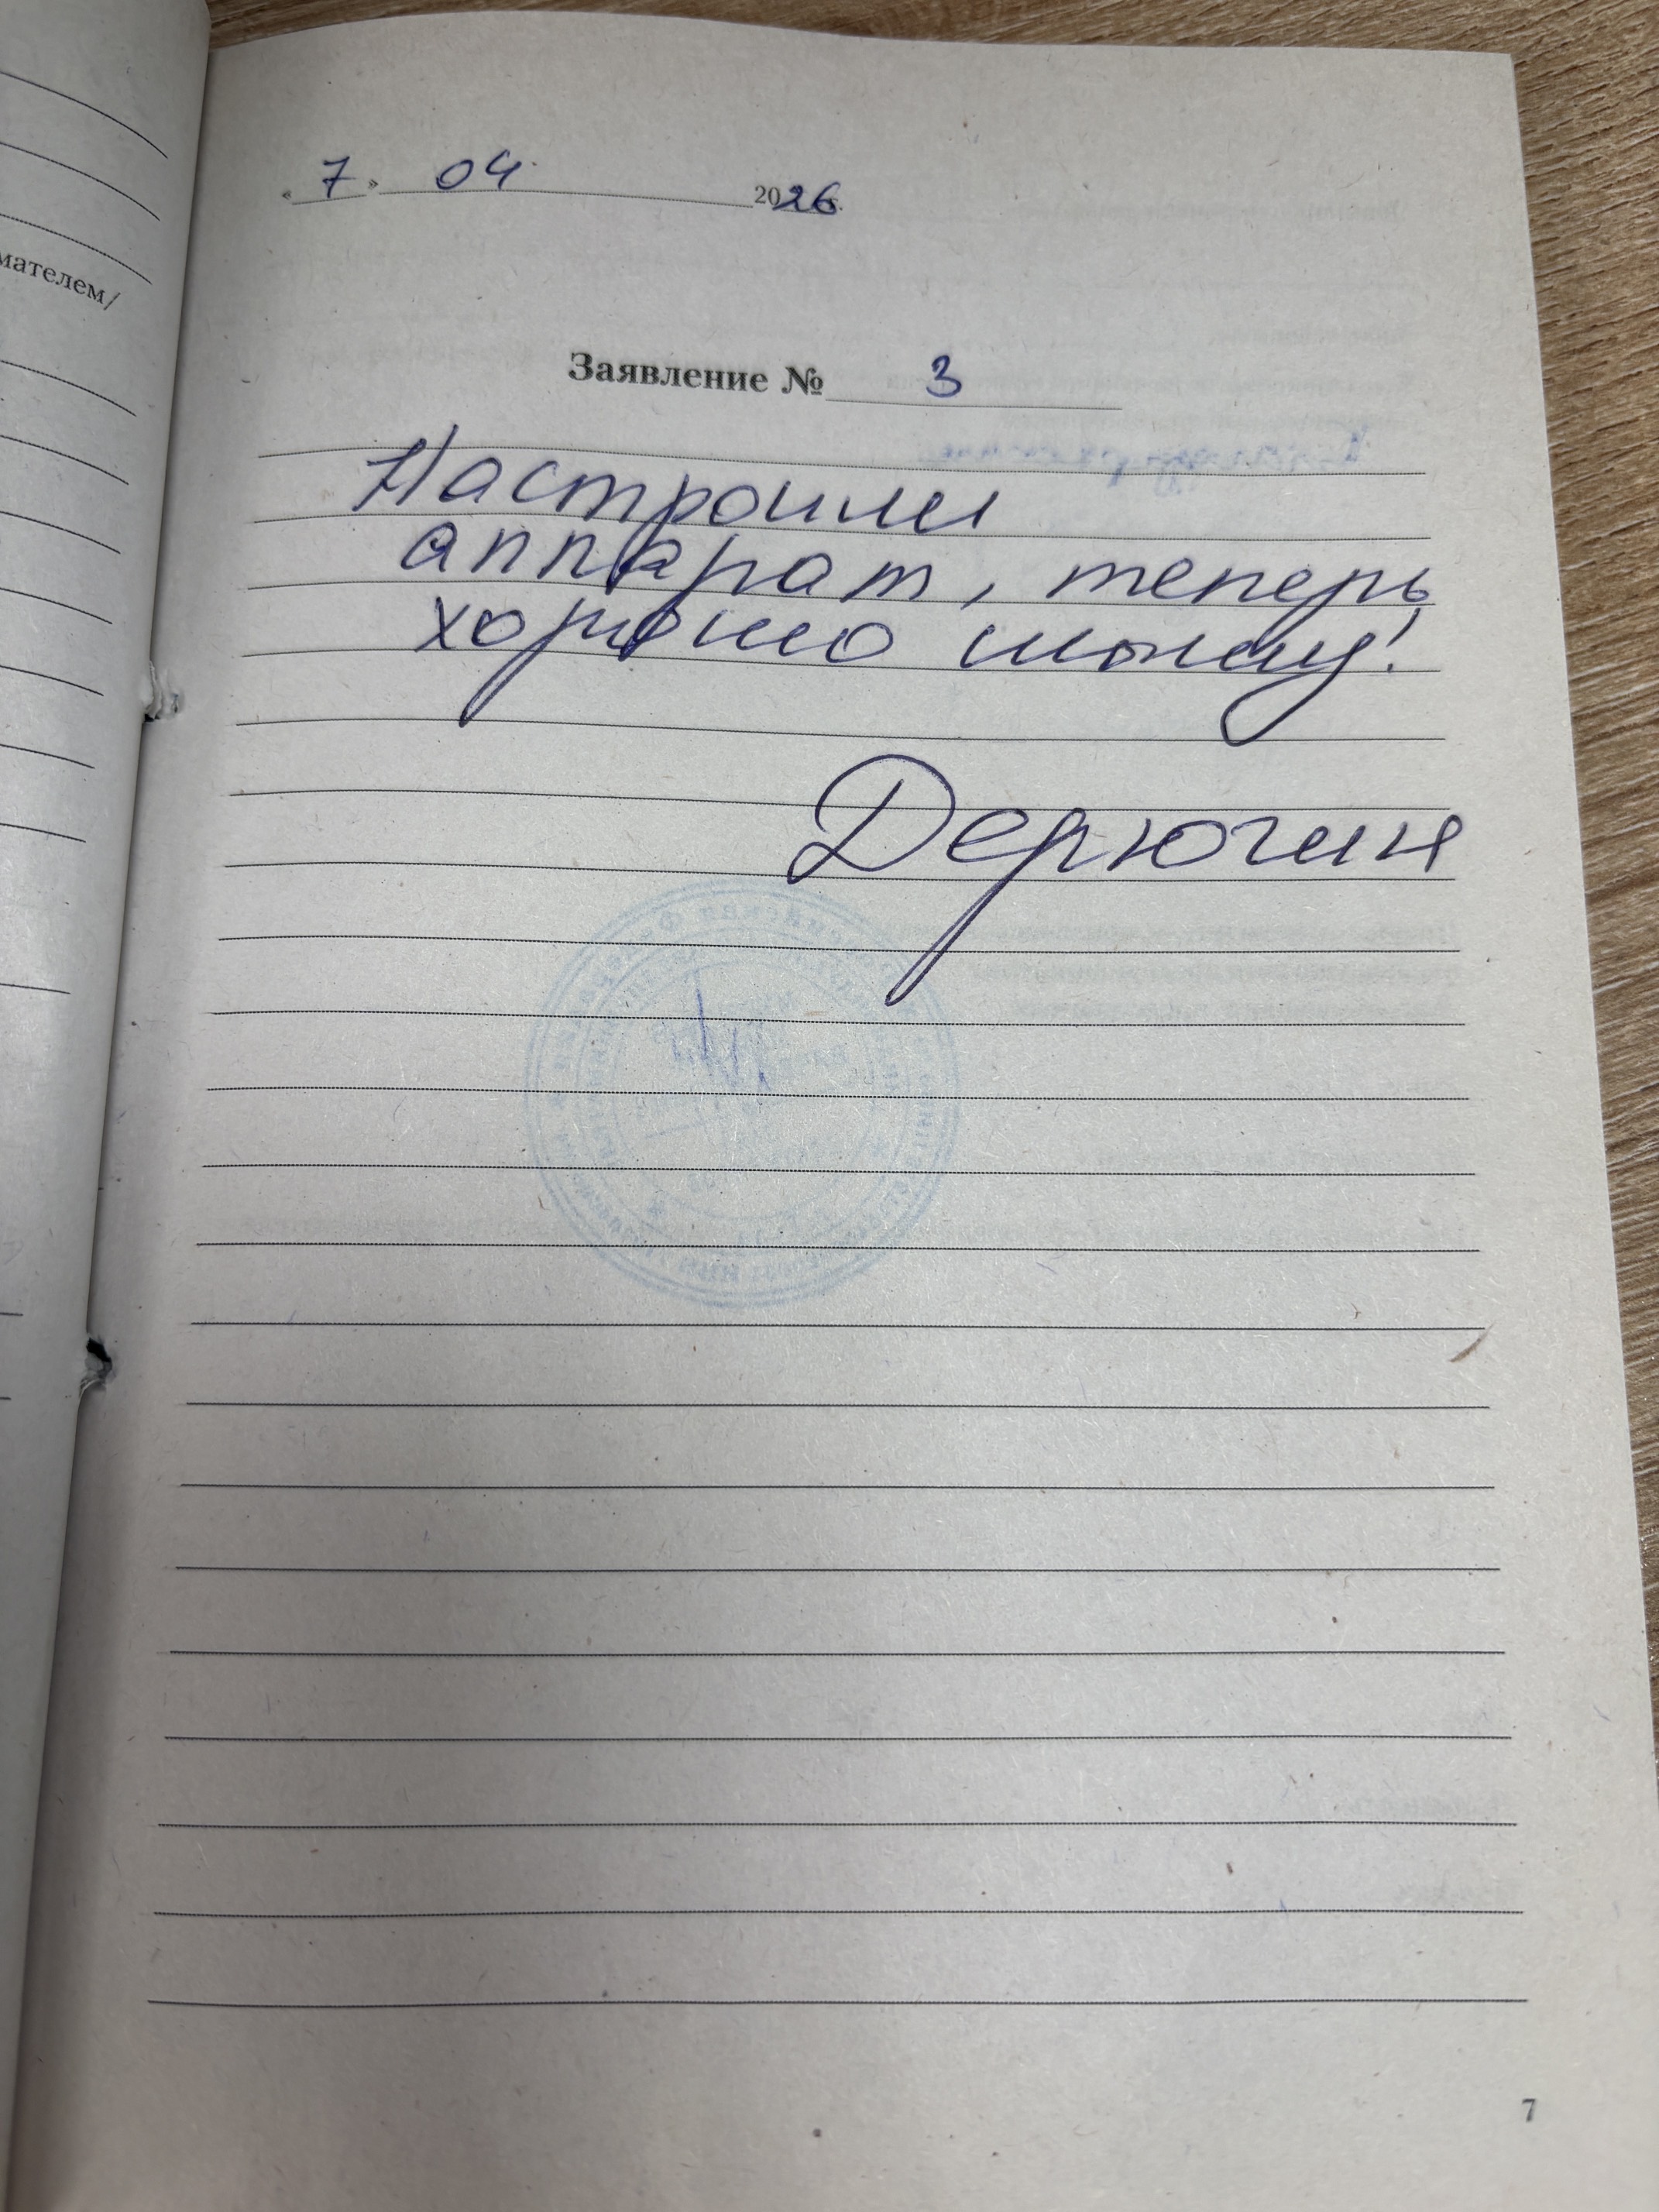 мателем/
« 7 » 04 2026 г.
Заявление № 3
Настроили
аппарат, теперь
хорошо слышу!
Дерюгин
7